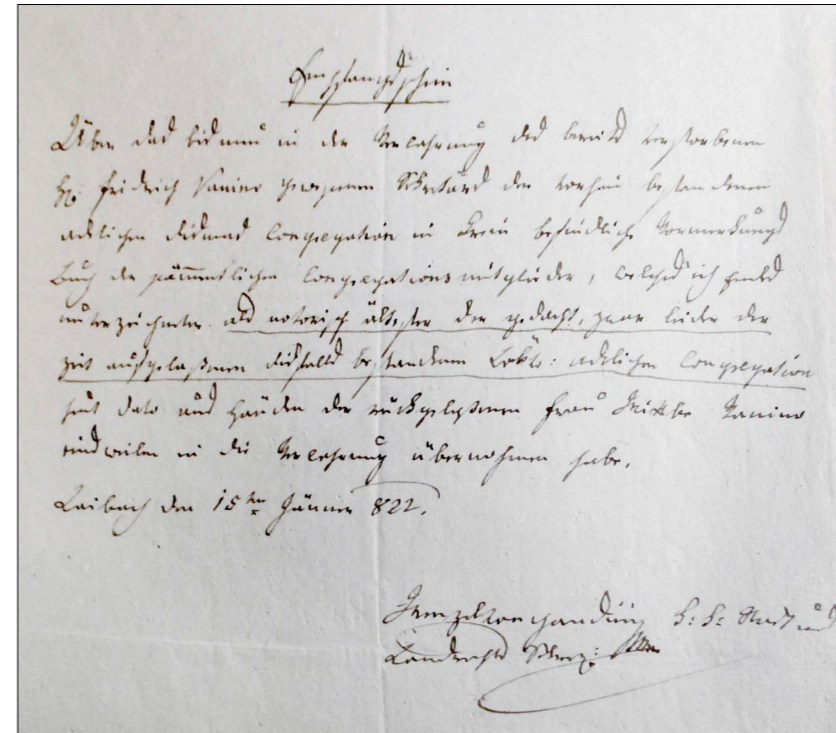 Empfangsschein
Über das bis nun in der Verwahrung des bereits verstorbenen
H. Fridrich Vanino gewesenen Sekretärs der vorhin bestandenen
adelichen Congregation in Krain befindliche Vormerkungs
Buch der sämmentlichen Congregationsmitglieder, welches ich Endes
unterzeichneter als notorisch ältester der gedacht, zwar leider der
Zeit aufgelaßenen diesfalls bestandenen adelichen Congregation
heut dato aus Händen der rückgelaßenen Frau Wittbe Vanino
einsweilen in die Verwahrung übernohmen habe.
Laibach den 15ten Jänner 822.
k: k: Stadt und
Landrechts